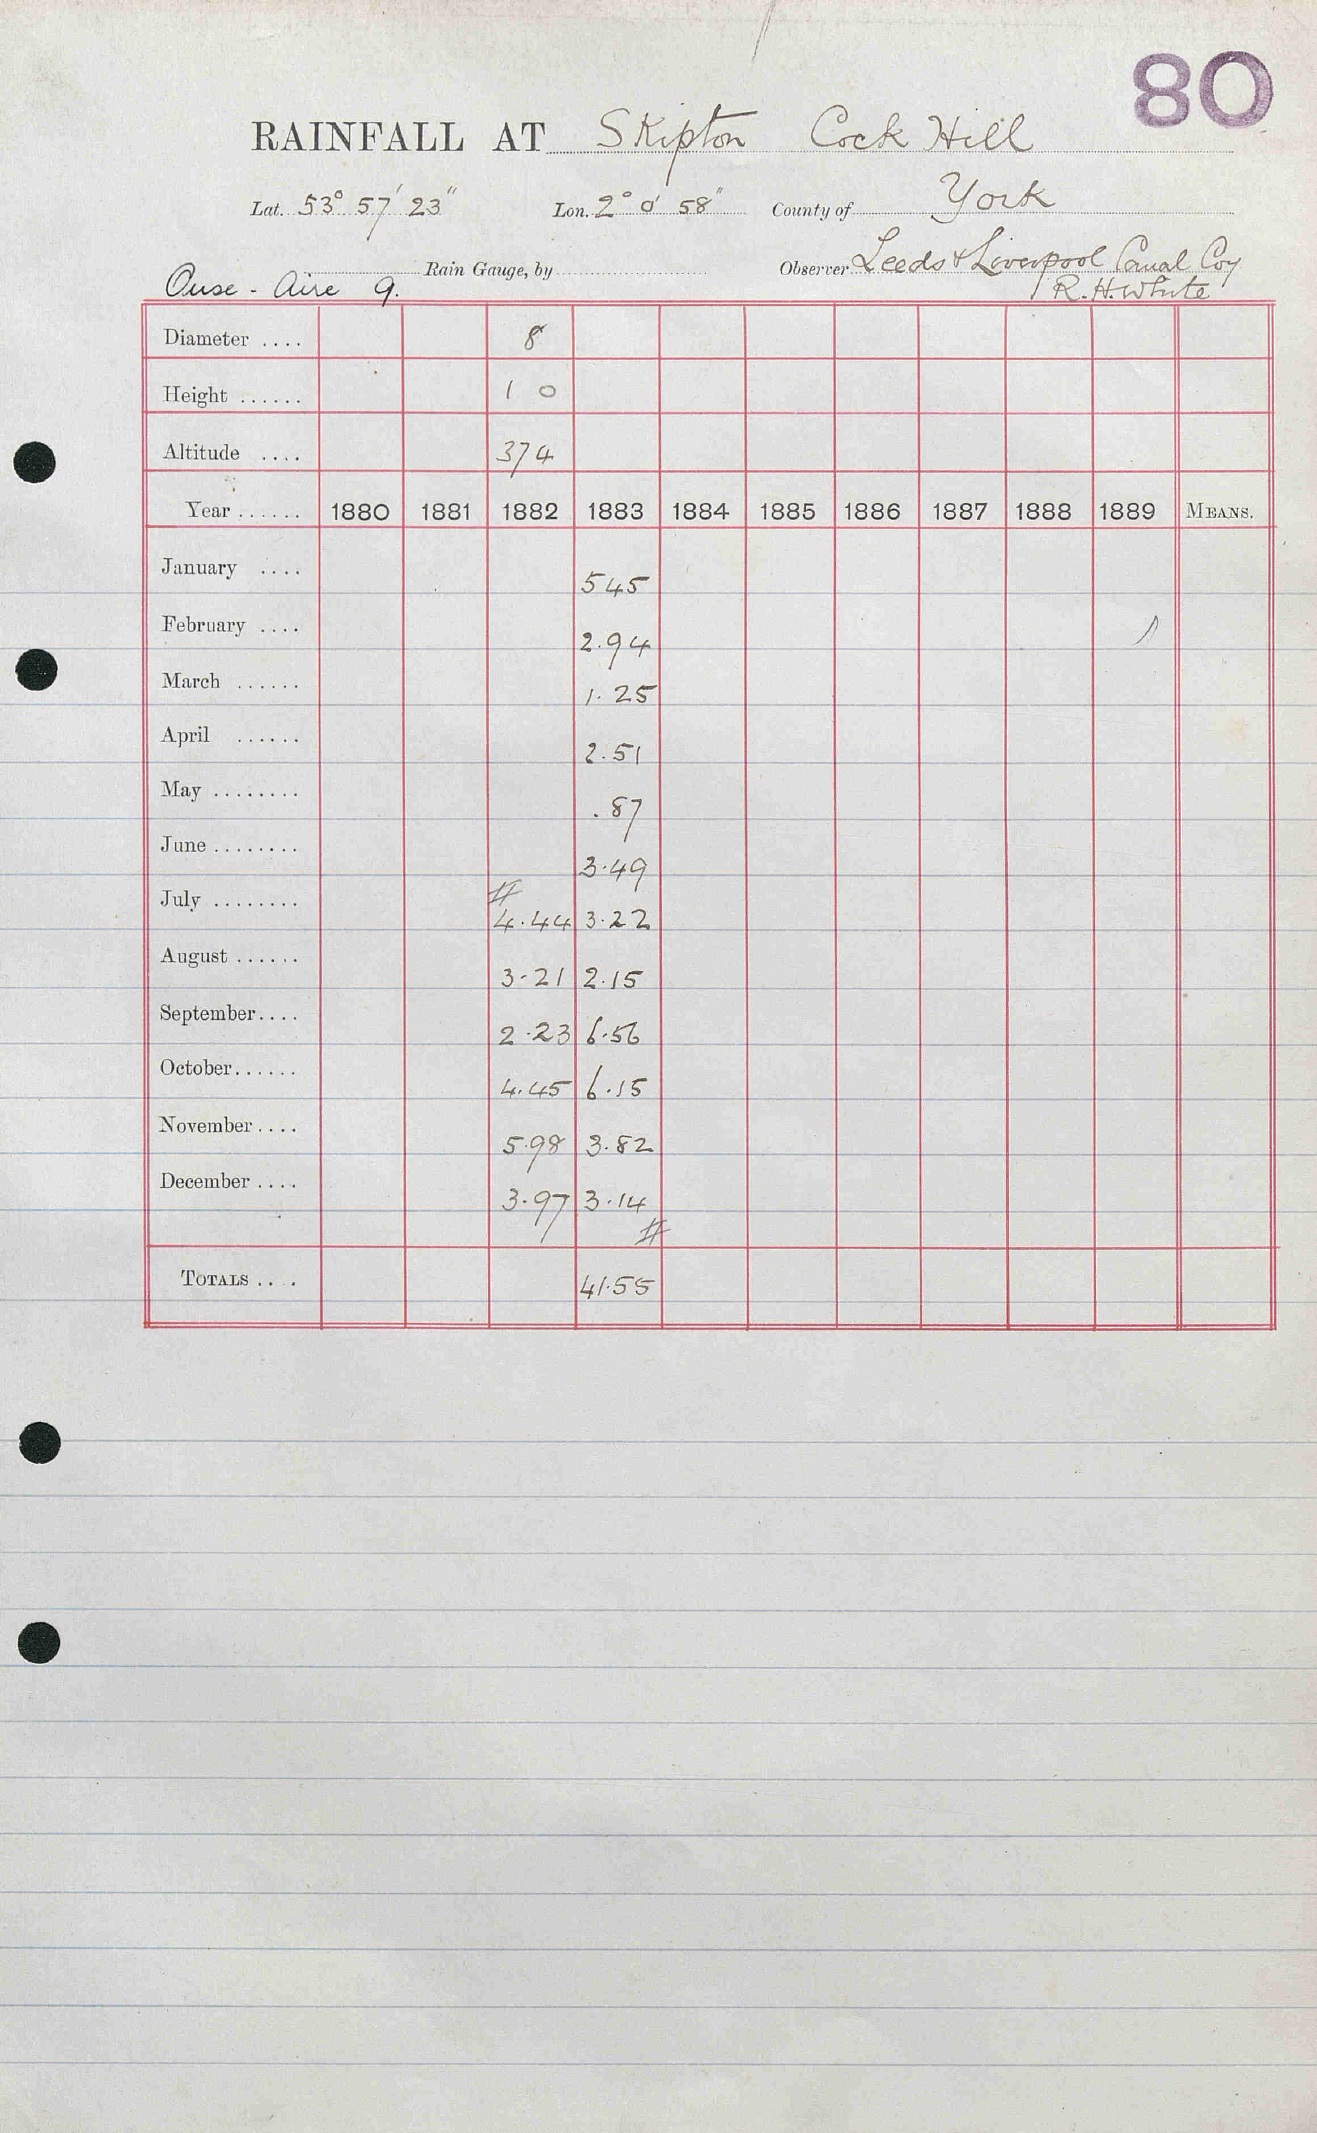 80
RAINFALL AT Skipton Cock Hill
Lat. 53° 57' 23" Lon. 2° 0' 58" County of York
Rain Gauge, by Observer Leeds & Liverpool Canal Coy
Ouse - Aire 9. R. H. White
Diameter .... 8
Height ...... 1 0
Altitude .... 374
Year ...... 1880 1881 1882 1883 1884 1885 1886 1887 1888 1889 MEANS.
January .... 545
February .... 2.94
March ...... 1.25
April ...... 2.51
May ........ .87
June ........ 3.49
July ........ 4.44 3.22
August ...... 3.21 2.15
September.... 2.23 6.56
October...... 4.45 6.15
November.... 5.98 3.82
December .... 3.97 3.14
TOTALS .... 41.55